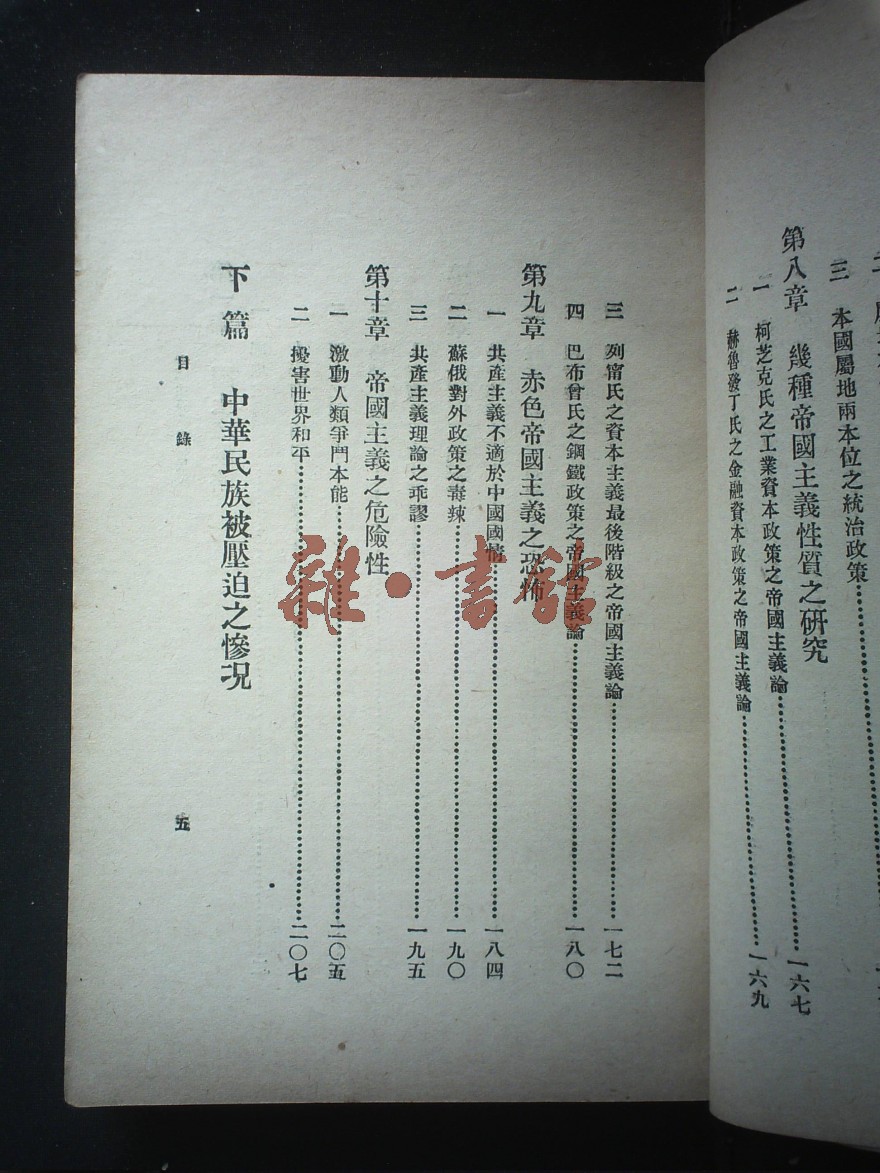 三　本國屬地兩本位之統治政策
第八章　幾種帝國主義性質之研究
一　柯芝克氏之工業資本政策之帝國主義論…………一六七
二　赫魯發丁氏之金融資本政策之帝國主義論…………一六九
三　列甯氏之資本主義最後階級之帝國主義論…………一七二
四　巴布曾氏之鋼鐵政策之帝國主義論…………一八〇
第九章　赤色帝國主義之恐怖
一　共產主義不適於中國國情…………一八四
二　蘇俄對外政策之毒辣…………一九〇
三　共產主義理論之乖謬…………一九五
第十章　帝國主義之危險性
一　激動人類爭鬥本能…………二〇五
二　擾害世界和平…………二〇七
下篇　中華民族被壓迫之慘况
目錄　五
雜·書館